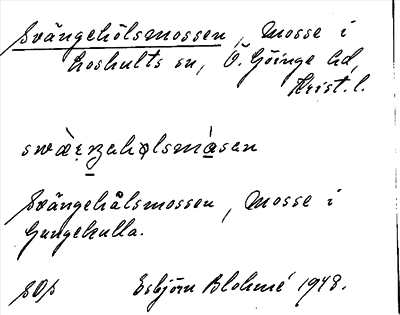 Svängehölsmossen, mosse i
Loshults sn, Ö. Göinge hd,
Krist. l.
Svängehålsmossen, mosse i
Gungekulla.
SOp Esbjörn Blohmé 1948.